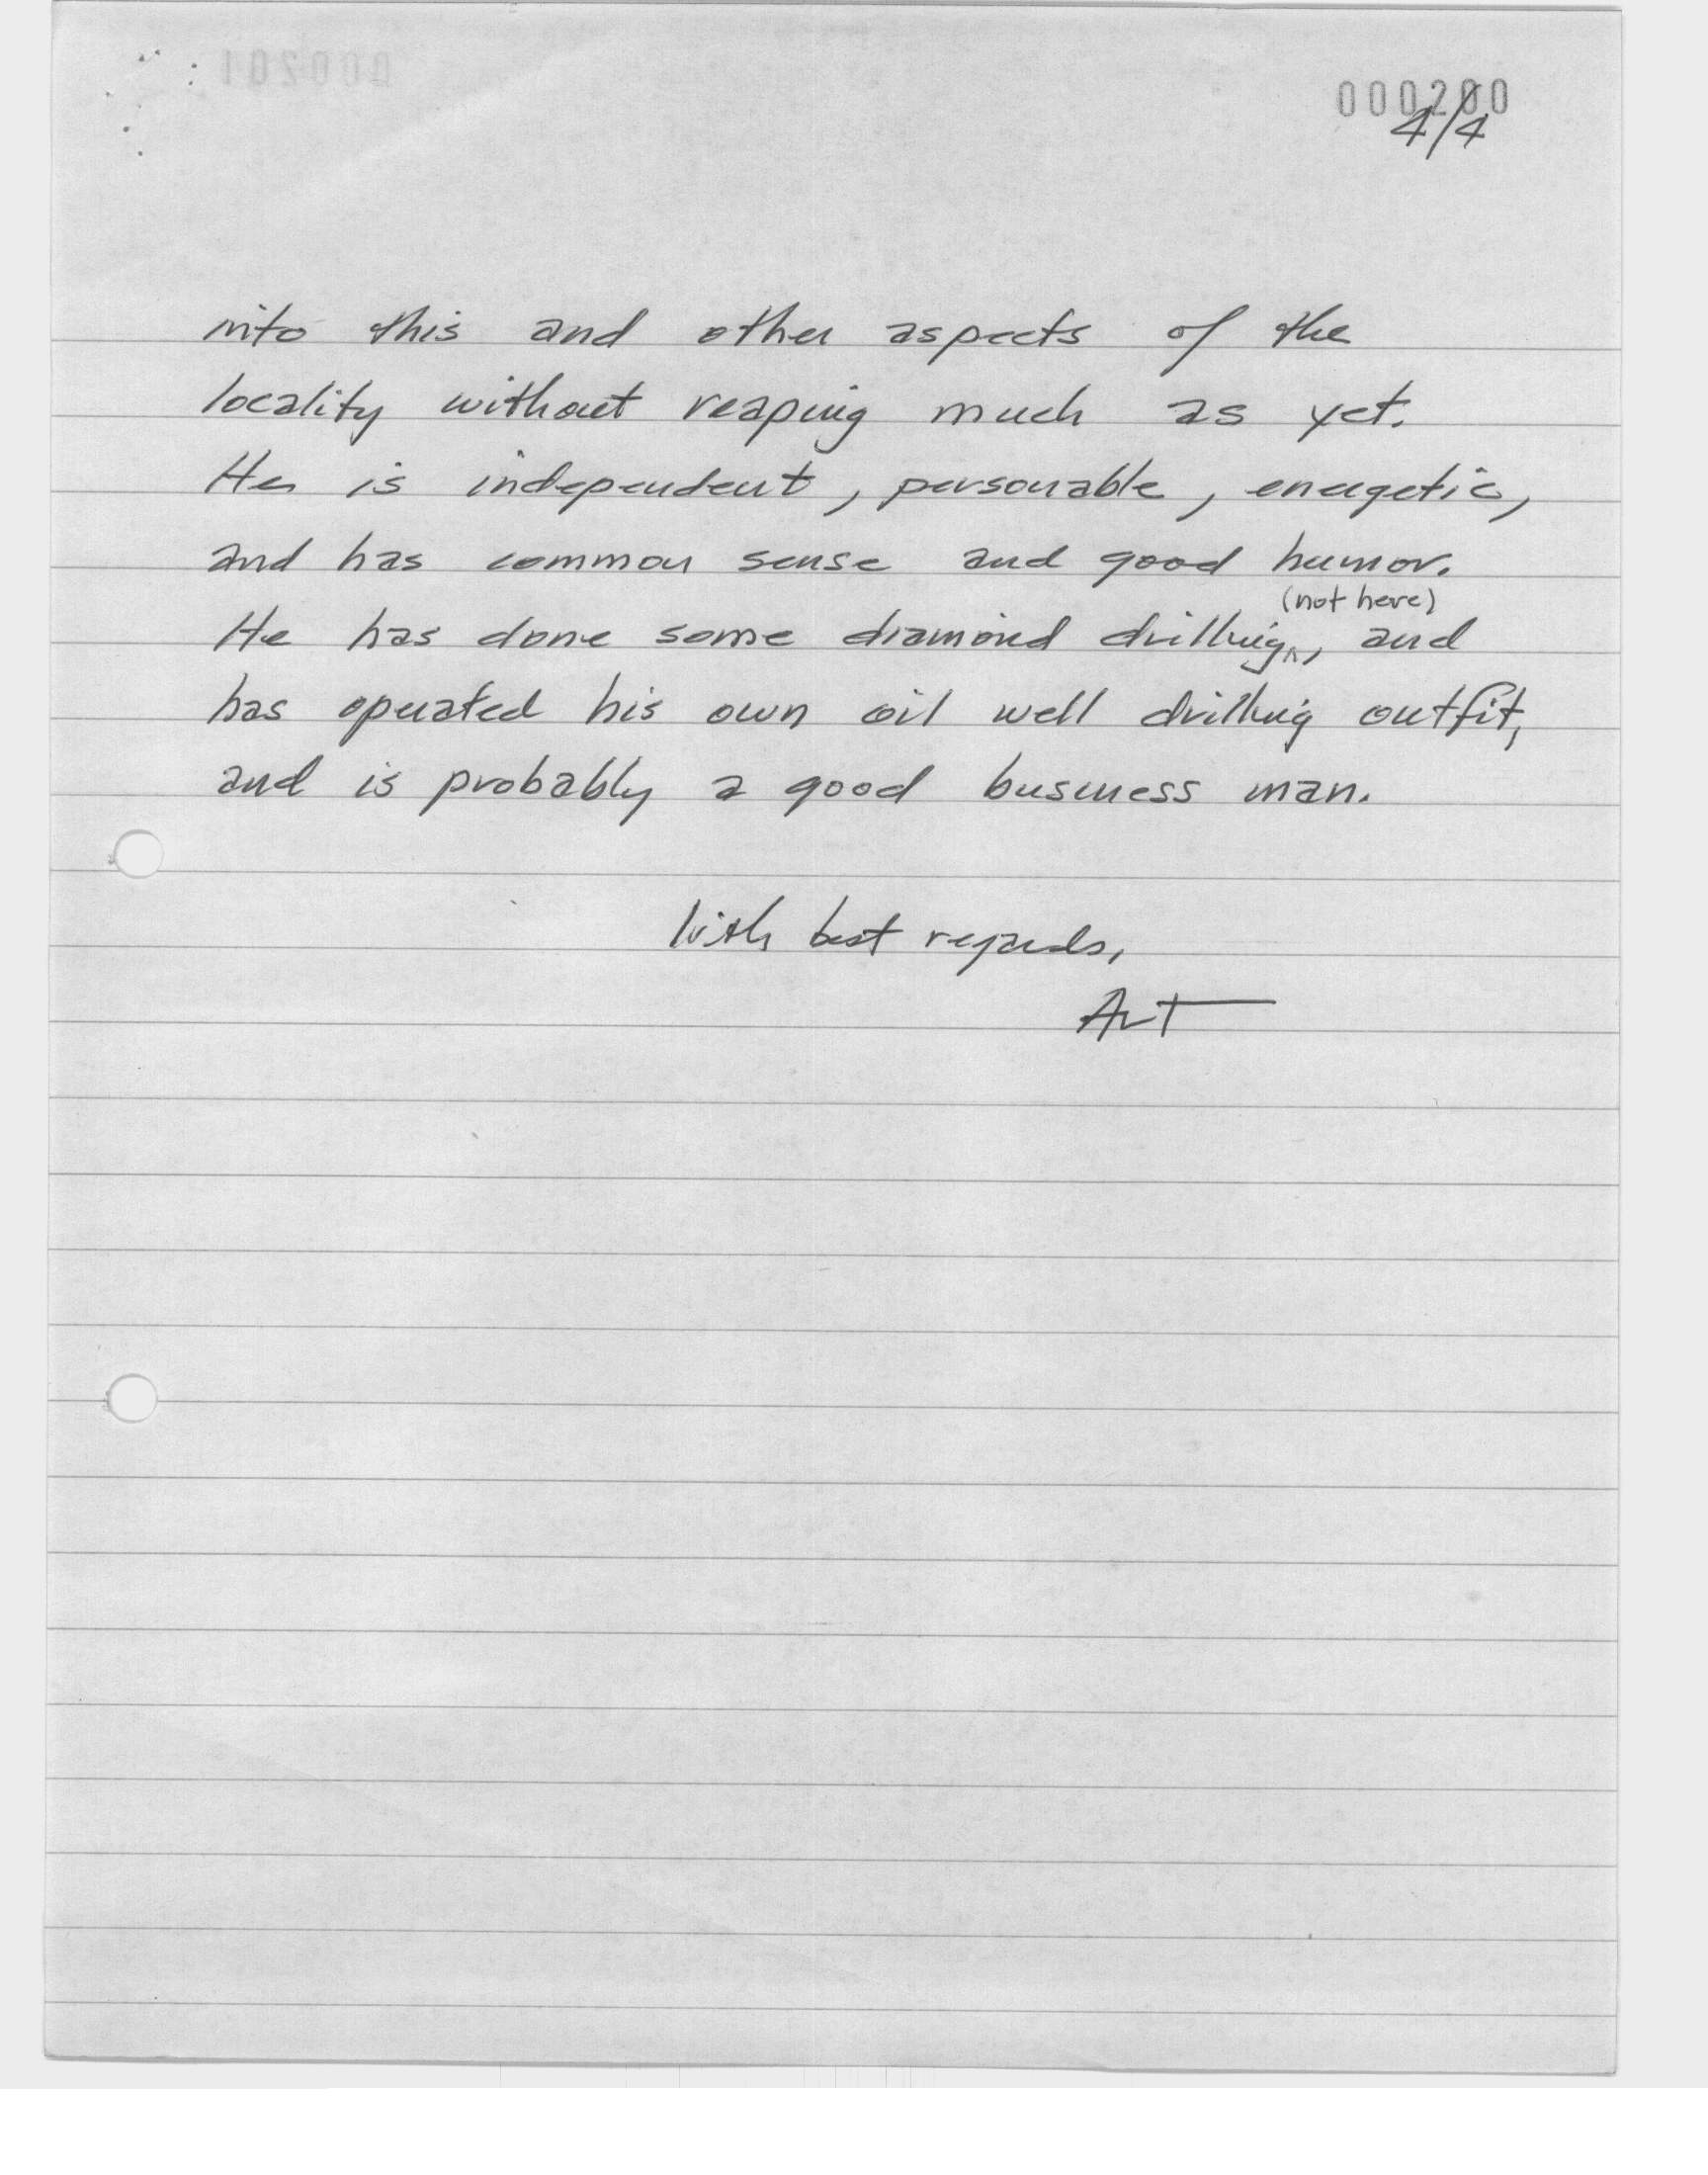 000200
4/4
into this and other aspects of the
locality without reaping much as yet.
He is independent, personable, energetic,
and has common sense and good humor.
(not here)
He has done some diamond drilling^, and
has operated his own oil well drilling outfit,
and is probably a good business man.
With best regards,
Art